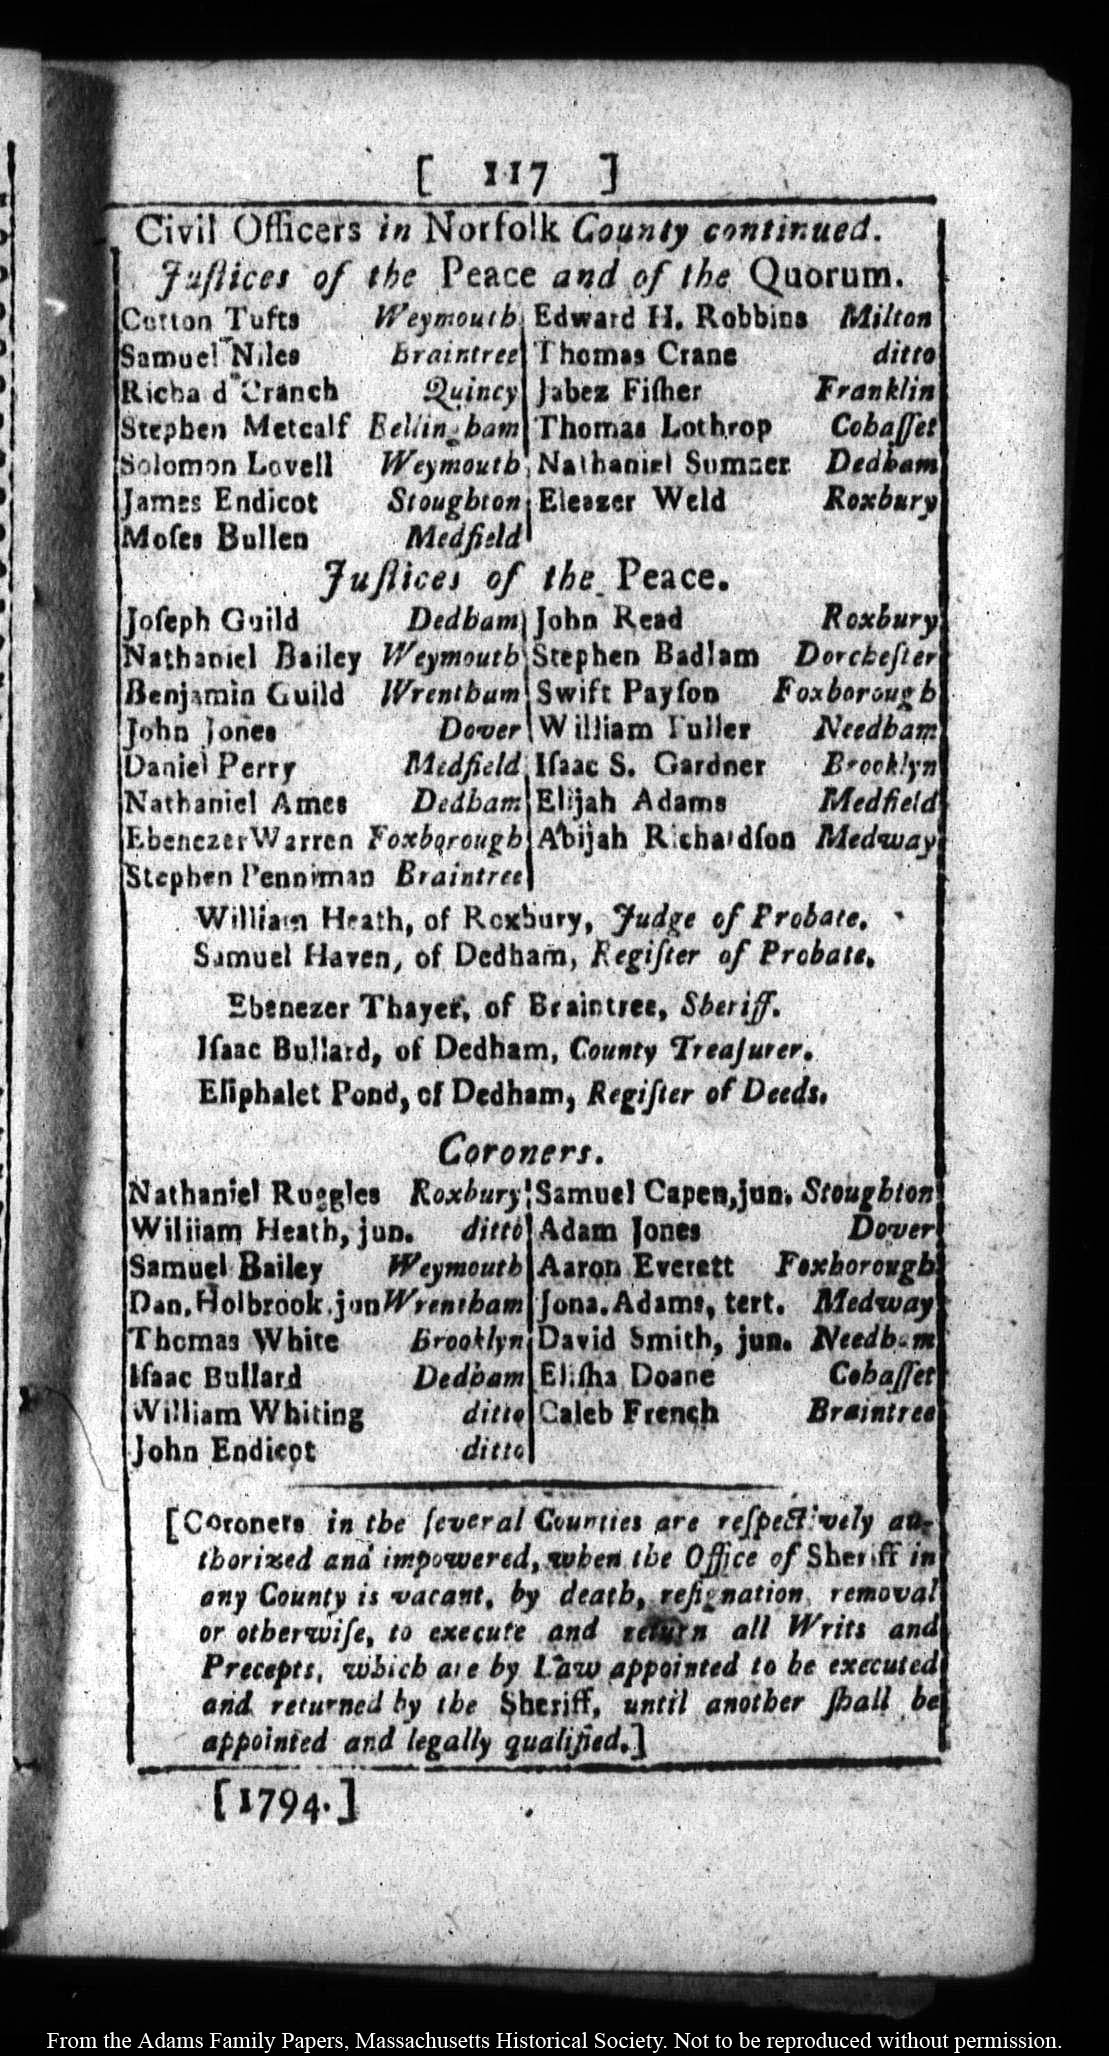 [ 117 ]
Civil Officers in Norfolk County continued.
Juſtices of the Peace and of the Quorum.
Cotton Tufts Weymouth
Samuel Niles Braintree
Richa d Cranch Quincy
Stephen Metcalf Bellingham
Solomon Lovell Weymouth
James Endicot Stoughton
Moſes Bullen Medfield
Edward H. Robbins Milton
Thomas Crane ditto
Jabez Fiſher Franklin
Thomas Lothrop Cohaſſet
Nathaniel Sumner Dedham
Eleazer Weld Roxbury
Juſtices of the Peace.
Joſeph Guild Dedham
Nathaniel Bailey Weymouth
Benjamin Guild Wrentham
John Jones Dover
Daniel Perry Medfield
Nathaniel Ames Dedham
Ebenezer Warren Foxborough
Stephen Penniman Braintree
John Read Roxbury
Stephen Badlam Dorcheſter
Swift Payſon Foxborough
William Fuller Needham
Iſaac S. Gardner Brooklyn
Elijah Adams Medfield
Abijah Richardſon Medway
William Heath, of Roxbury, Judge of Probate.
Samuel Haven, of Dedham, Regiſter of Probate.
Ebenezer Thayer, of Braintree, Sheriff.
Iſaac Bullard, of Dedham, County Treaſurer.
Eliphalet Pond, of Dedham, Regiſter of Deeds.
Coroners.
Nathaniel Ruggles Roxbury
William Heath, jun. ditto
Samuel Bailey Weymouth
Dan. Holbrook jun Wrentham
Thomas White Brooklyn
Iſaac Bullard Dedham
William Whiting ditto
John Endicot ditto
Samuel Capen, jun. Stoughton
Adam Jones Dover
Aaron Everett Foxborough
Jona. Adams, tert. Medway
David Smith, jun. Needham
Eliſha Doane Cohaſſet
Caleb French Braintree
[Coroners in the ſeveral Counties are reſpectively au-
thorized and impowered, when the Office of Sheriff in
any County is vacant, by death, reſignation, removal
or otherwiſe, to execute and return all Writs and
Precepts, which are by Law appointed to be executed
and returned by the Sheriff, until another ſhall be
appointed and legally qualified.]
[1794.]
From the Adams Family Papers, Massachusetts Historical Society. Not to be reproduced without permission.